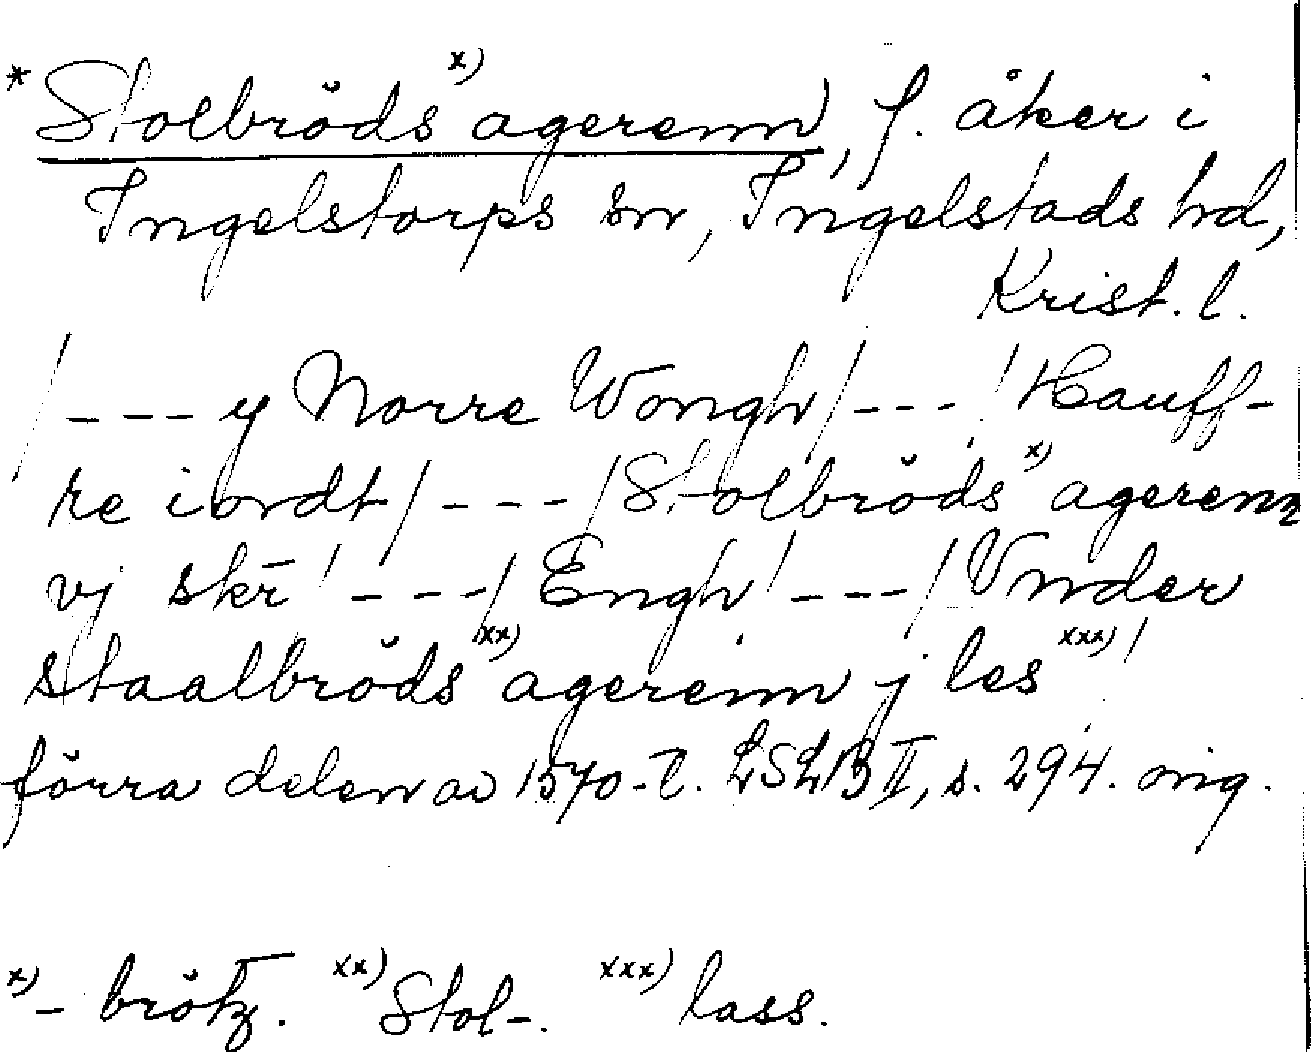 * Stolbröds x) agerenn, f. åker i
Ingelstorps sn, Ingelstads hd,
Krist. l.
/--- y Norre Wongh/---/Hauff-
re iordt/---/Stolbröds x) agerenn
vj skr̄/---/Engh/---/Vnder
staalbröds xx) agerenn j les xxx)/
förra delen av 1570-t. LSLB II, s. 294. orig.
x) -brötz. xx) Stol-. xxx) lass.